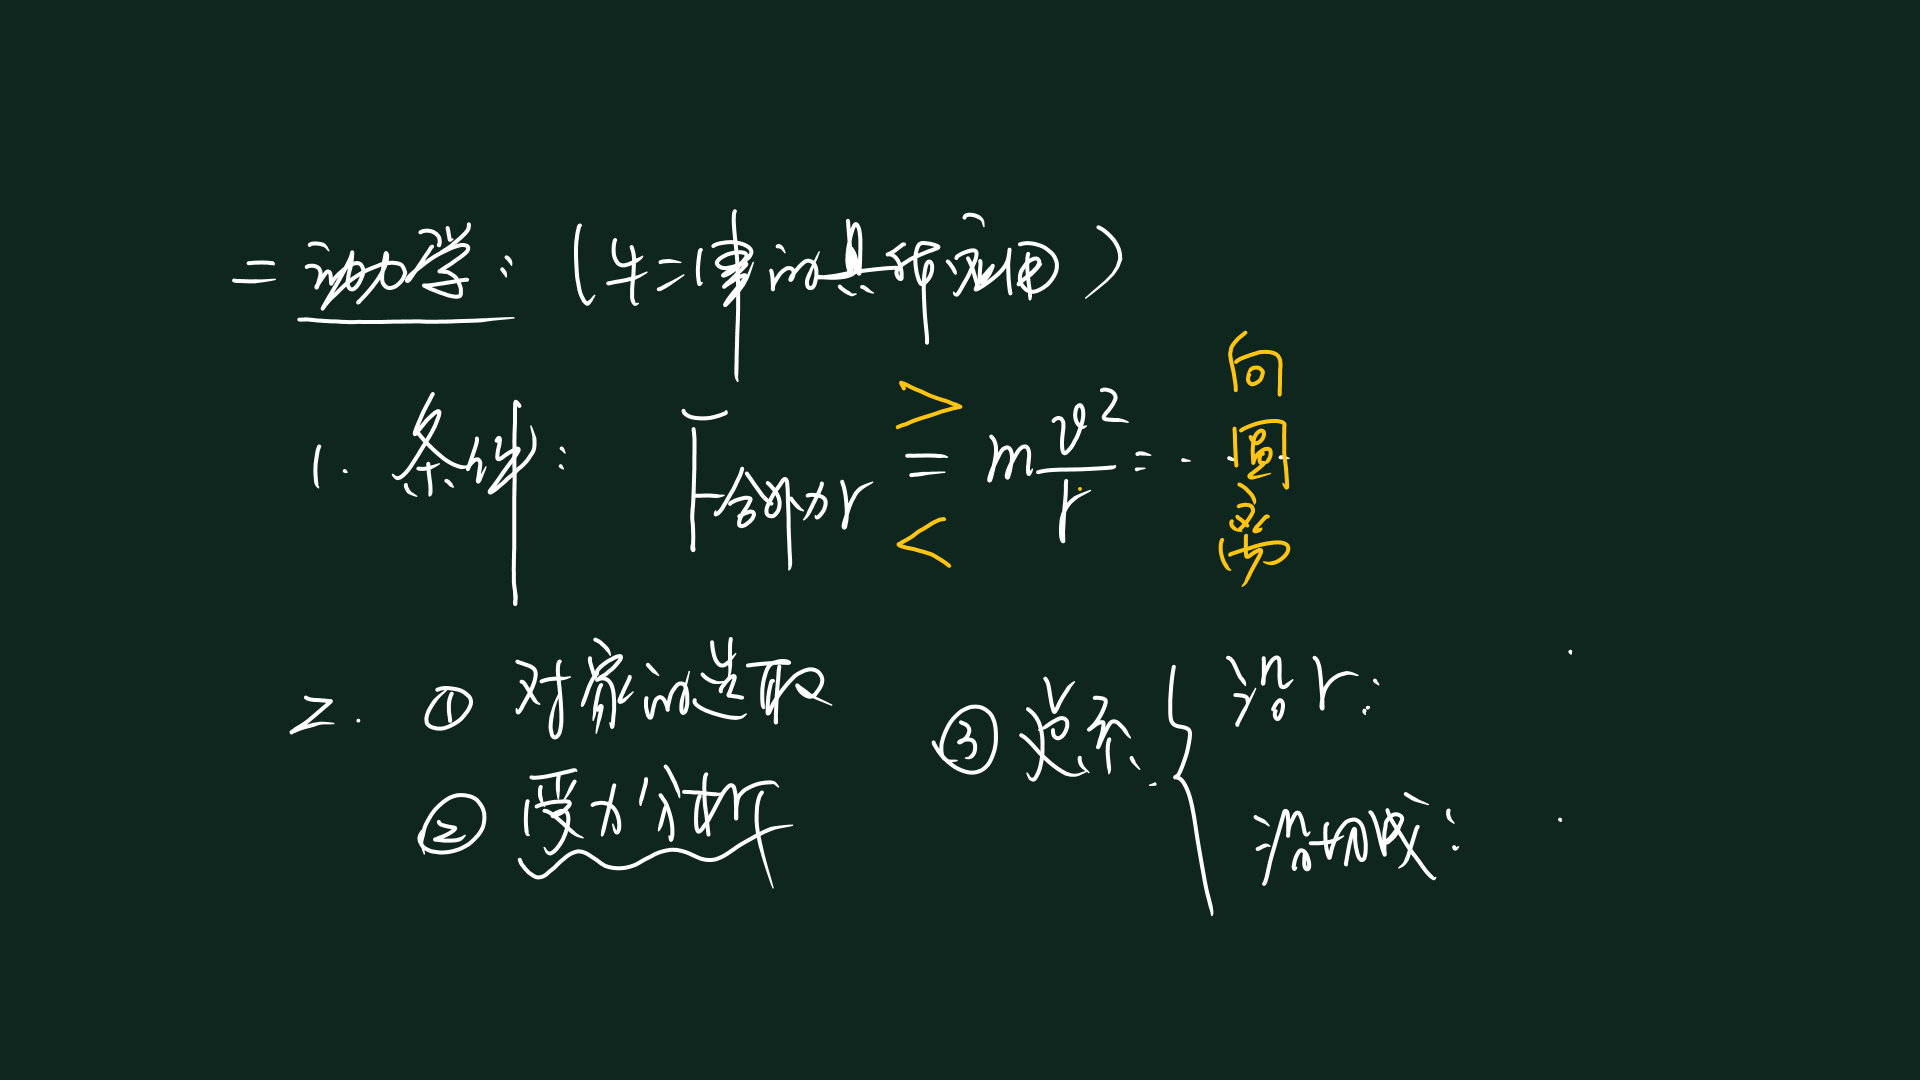 二 动力学：（牛二律的具体应用）
1. 条件： F合外力r > = < m v²/r = · · · 向 圆 离
2. ① 对象的选取
② 受力分析
③ 关系 { 沿r：
沿切线：